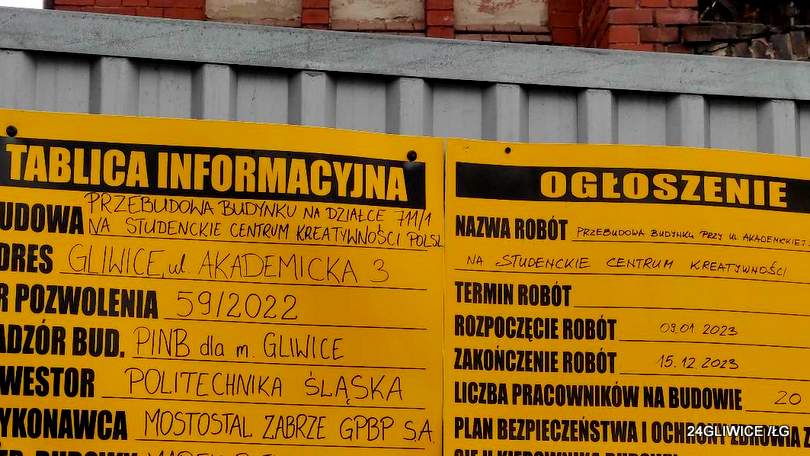 TABLICA INFORMACYJNA
UDOWA PRZEBUDOWA BUDYNKU NA DZIAŁCE 711/1
NA STUDENCKIE CENTRUM KREATYWNOŚCI POLSL
DRES GLIWICE, ul. AKADEMICKA 3
R POZWOLENIA 59/2022
ADZÓR BUD. PINB dla m. GLIWICE
WESTOR POLITECHNIKA ŚLĄSKA
YKONAWCA MOSTOSTAL ZABRZE GPBP S.A.
OGŁOSZENIE
NAZWA ROBÓT PRZEBUDOWA BUDYNKU PRZY UL. AKADEMICKIEJ
NA STUDENCKIE CENTRUM KREATYWNOŚCI
TERMIN ROBÓT
ROZPOCZĘCIE ROBÓT 09.01.2023
ZAKOŃCZENIE ROBÓT 15.12.2023
LICZBA PRACOWNIKÓW NA BUDOWIE 20
PLAN BEZPIECZEŃSTWA I OCHRONY ZDROWIA Z
24GLIWICE /ŁG